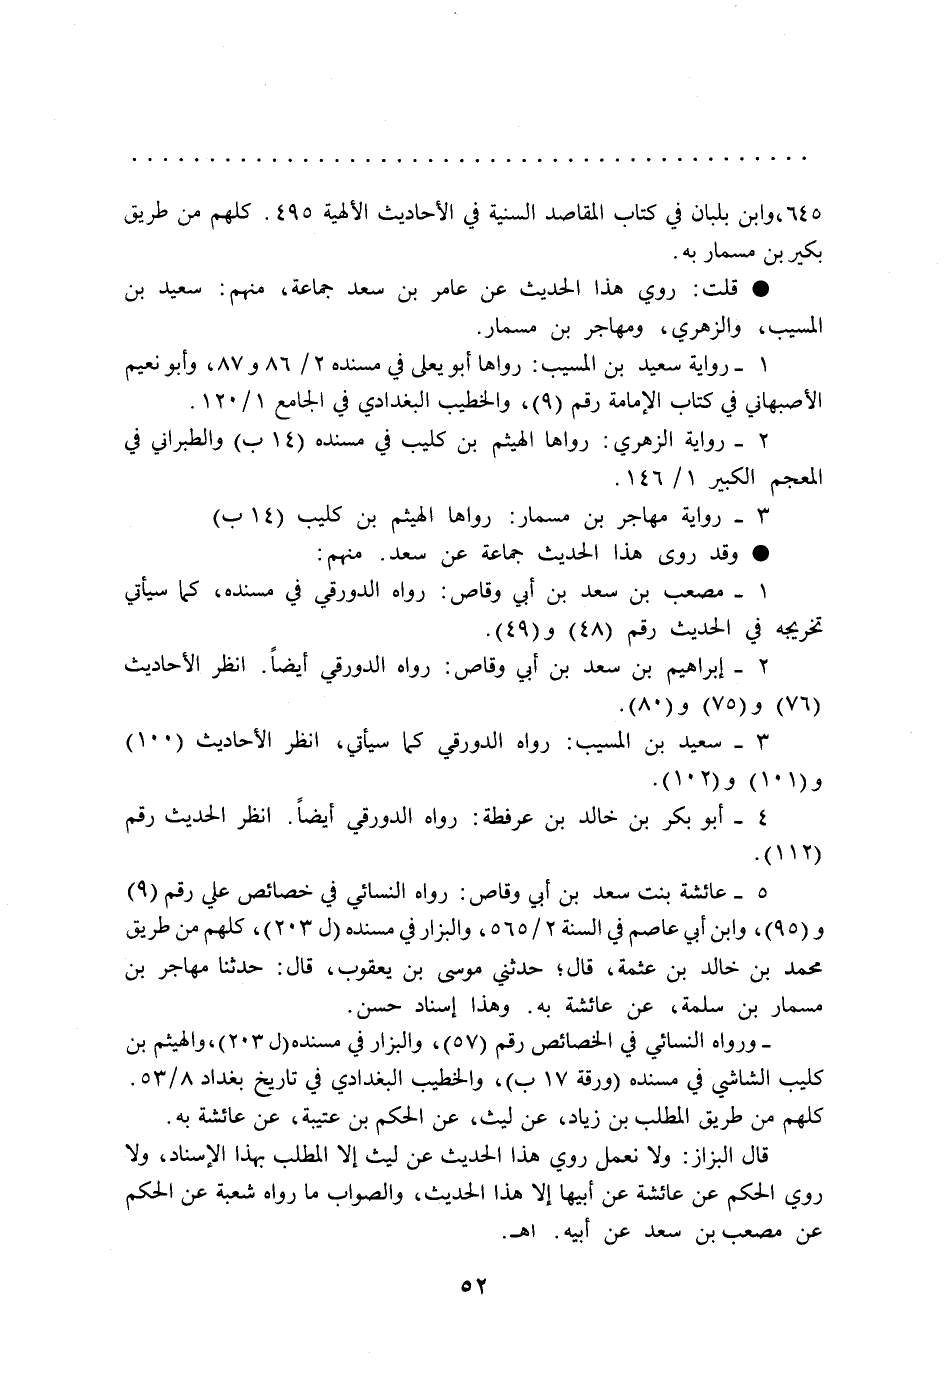 . . . . . . . . . . . . . . . . . . . . . . . . . . . . . . . . . . . . . . . . . . . .
٦٤٥، وابن بلبان في كتاب المقاصد السنية في الأحاديث الألهية ٤٩٥. كلهم من طريق
بكير بن مسمار به.
● قلت: روي هذا الحديث عن عامر بن سعد جماعة، منهم: سعيد بن
المسيب، والزهري، ومهاجر بن مسمار.
١ ـ رواية سعيد بن المسيب: رواها أبو يعلى في مسنده ٢/ ٨٦ و ٨٧، وأبو نعيم
الأصبهاني في كتاب الإمامة رقم (٩)، والخطيب البغدادي في الجامع ١/ ١٢٠.
٢ ـ رواية الزهري: رواها الهيثم بن كليب في مسنده (١٤ ب) والطبراني في
المعجم الكبير ١/ ١٤٦.
٣ ـ رواية مهاجر بن مسمار: رواها الهيثم بن كليب (١٤ ب)
● وقد روى هذا الحديث جماعة عن سعد. منهم:
١ ـ مصعب بن سعد بن أبي وقاص: رواه الدورقي في مسنده، كما سيأتي
تخريجه في الحديث رقم (٤٨) و(٤٩).
٢ ـ إبراهيم بن سعد بن أبي وقاص: رواه الدورقي أيضاً. انظر الأحاديث
(٧٦) و(٧٥) و(٨٠).
٣ ـ سعيد بن المسيب: رواه الدورقي كما سيأتي، انظر الأحاديث (١٠٠)
و(١٠١) و(١٠٢).
٤ ـ أبو بكر بن خالد بن عرفطة: رواه الدورقي أيضاً. انظر الحديث رقم
(١١٢).
٥ ـ عائشة بنت سعد بن أبي وقاص: رواه النسائي في خصائص علي رقم (٩)
و(٩٥)، وابن أبي عاصم في السنة ٢/ ٥٦٥، والبزار في مسنده (ل ٢٠٣)، كلهم من طريق
محمد بن خالد بن عثمة، قال؛ حدثني موسى بن يعقوب، قال: حدثنا مهاجر بن
مسمار بن سلمة، عن عائشة به. وهذا إسناد حسن.
ـ ورواه النسائي في الخصائص رقم (٥٧)، والبزار في مسنده(ل ٢٠٣)،والهيثم بن
كليب الشاشي في مسنده (ورقة ١٧ ب)، والخطيب البغدادي في تاريخ بغداد ٨/ ٥٣.
كلهم من طريق المطلب بن زياد، عن ليث، عن الحكم بن عتيبة، عن عائشة به.
قال البزاز: ولا نعمل روي هذا الحديث عن ليث إلا المطلب بهذا الإسناد، ولا
روي الحكم عن عائشة عن أبيها إلا هذا الحديث، والصواب ما رواه شعبة عن الحكم
عن مصعب بن سعد عن أبيه. اهـ.
٥٢